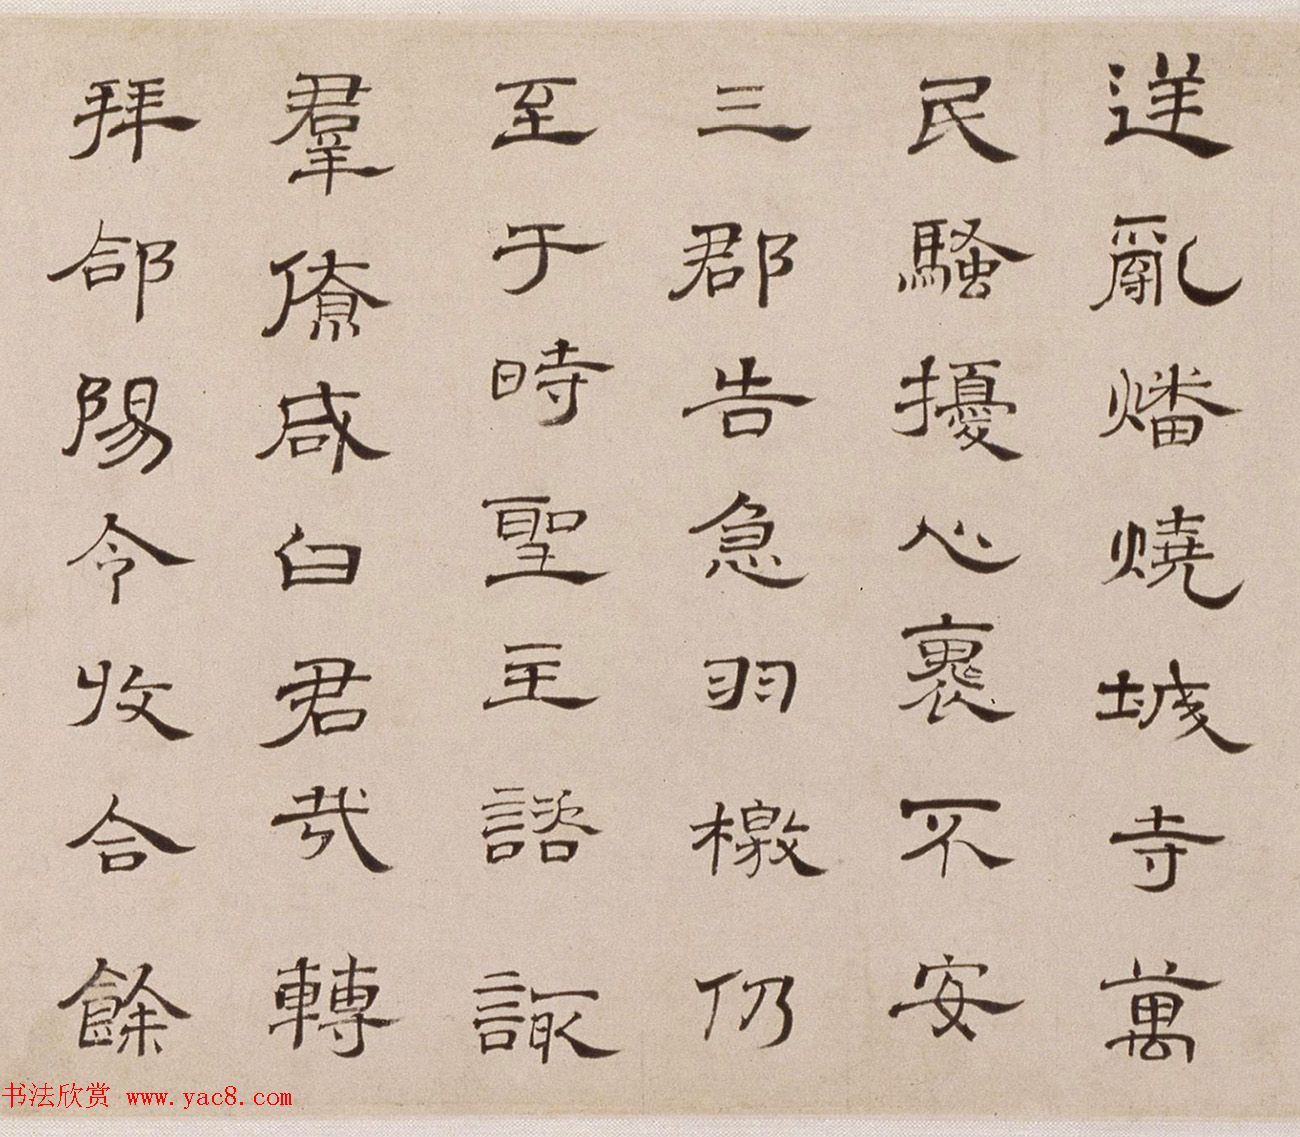 逆亂燔燒城寺萬
民騷擾人裹不安
三郡告急羽檄仍
至于時聖主諮諏
羣僚咸曰君哉轉
拜郃陽令收合餘
书法欣赏 www.yac8.com